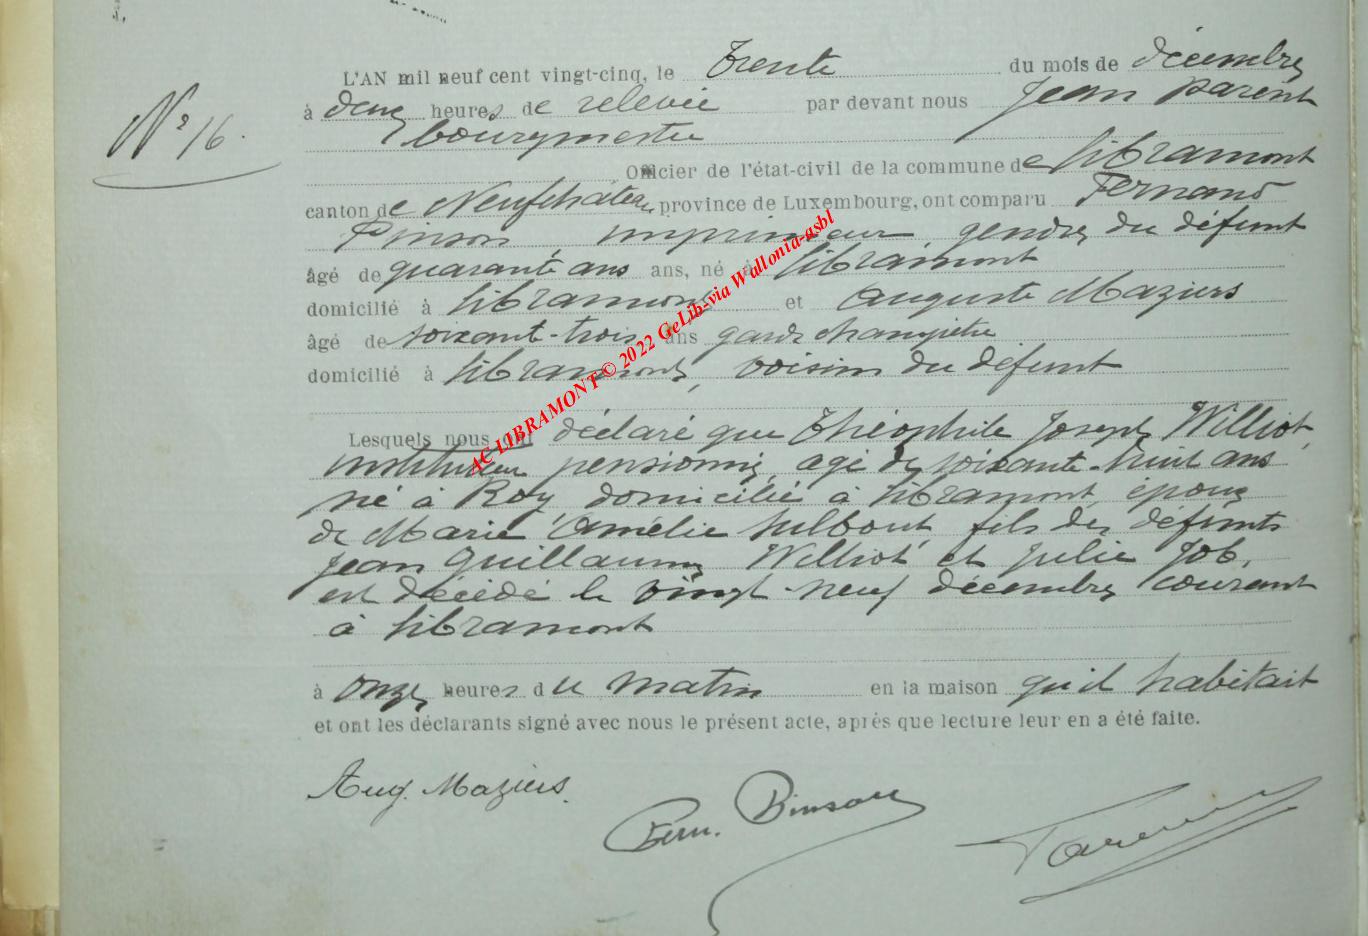 L'AN mil neuf cent vingt-cinq, le Trente du mois de décembre
à deux heures de relevée par devant nous Jean Parent
N° 16.
bourgmestre
Officier de l'état-civil de la commune de Libramont
canton de Neufchâteau, province de Luxembourg, ont comparu Fernand
Pinson, imprimeur gendre du défunt
âgé de quarante ans ans, né à Libramont
domicilié à Libramont et Auguste Maziers
âgé de soixant-trois ans garde champêtre
domicilié à Libramont, voisin du défunt
Lesquels nous ont déclaré que Théophile Joseph Williot,
instituteur pensionné, agé de soixante-huit ans
né à Roy, domicilié à Libramont, époux
de Marie Amélie fils des défunts
Jean Guillaume Williot et Julie Job,
est décédé le vingt neuf décembre courant
à Libramont
à onze heures du matin en la maison qu'il habitait
et ont les déclarants signé avec nous le présent acte, après que lecture leur en a été faite.
Aug. Maziers.
Fern. Pinson
Parent
AC LIBRAMONT © 2022 GeLib-via Wallonia-asbl